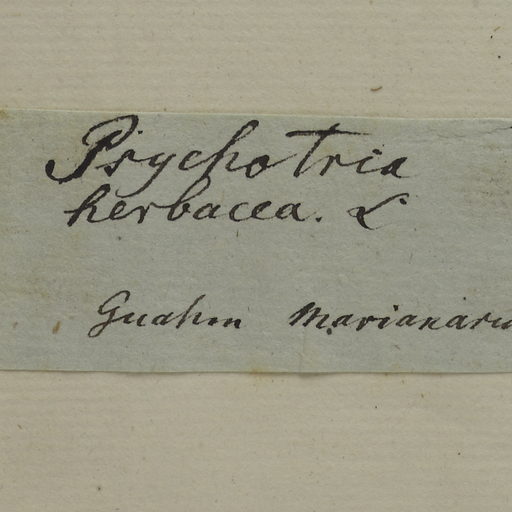 Psychotria
herbacea. L
Guahm Marianaru